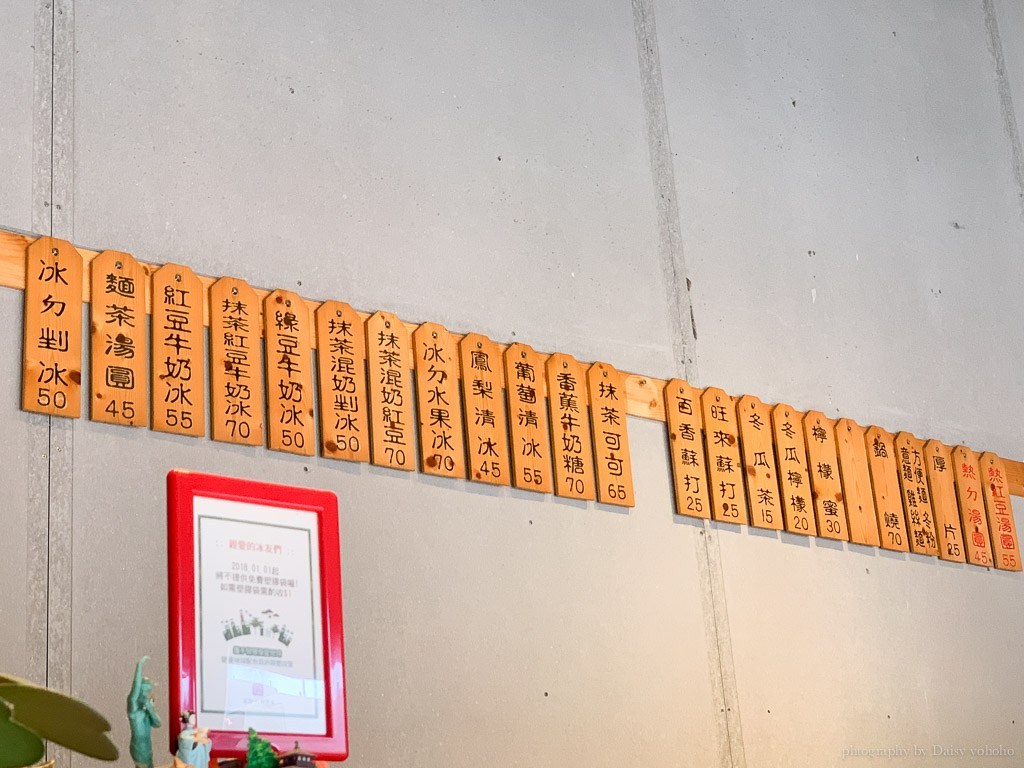 冰ㄉ剉冰50
麵茶湯圓45
紅豆牛奶冰55
抹茶紅豆牛奶冰70
綠豆牛奶冰50
抹茶混奶剉冰50
抹茶混奶紅豆70
冰ㄉ水果冰70
鳳梨清冰45
葡萄清冰55
香蕉牛奶糖70
抹茶可可65
百香蘇打25
旺來蘇打25
冬瓜茶15
冬瓜檸檬20
檸檬蜜30
鍋燒70
方便麵 冬粉
意麵 雞絲麵
厚片25
熱ㄉ湯圓45
熱紅豆湯圓55
親愛的冰友們
2018.01.01起
將不提供免費塑膠袋喔!
photography by Daisy yohoho